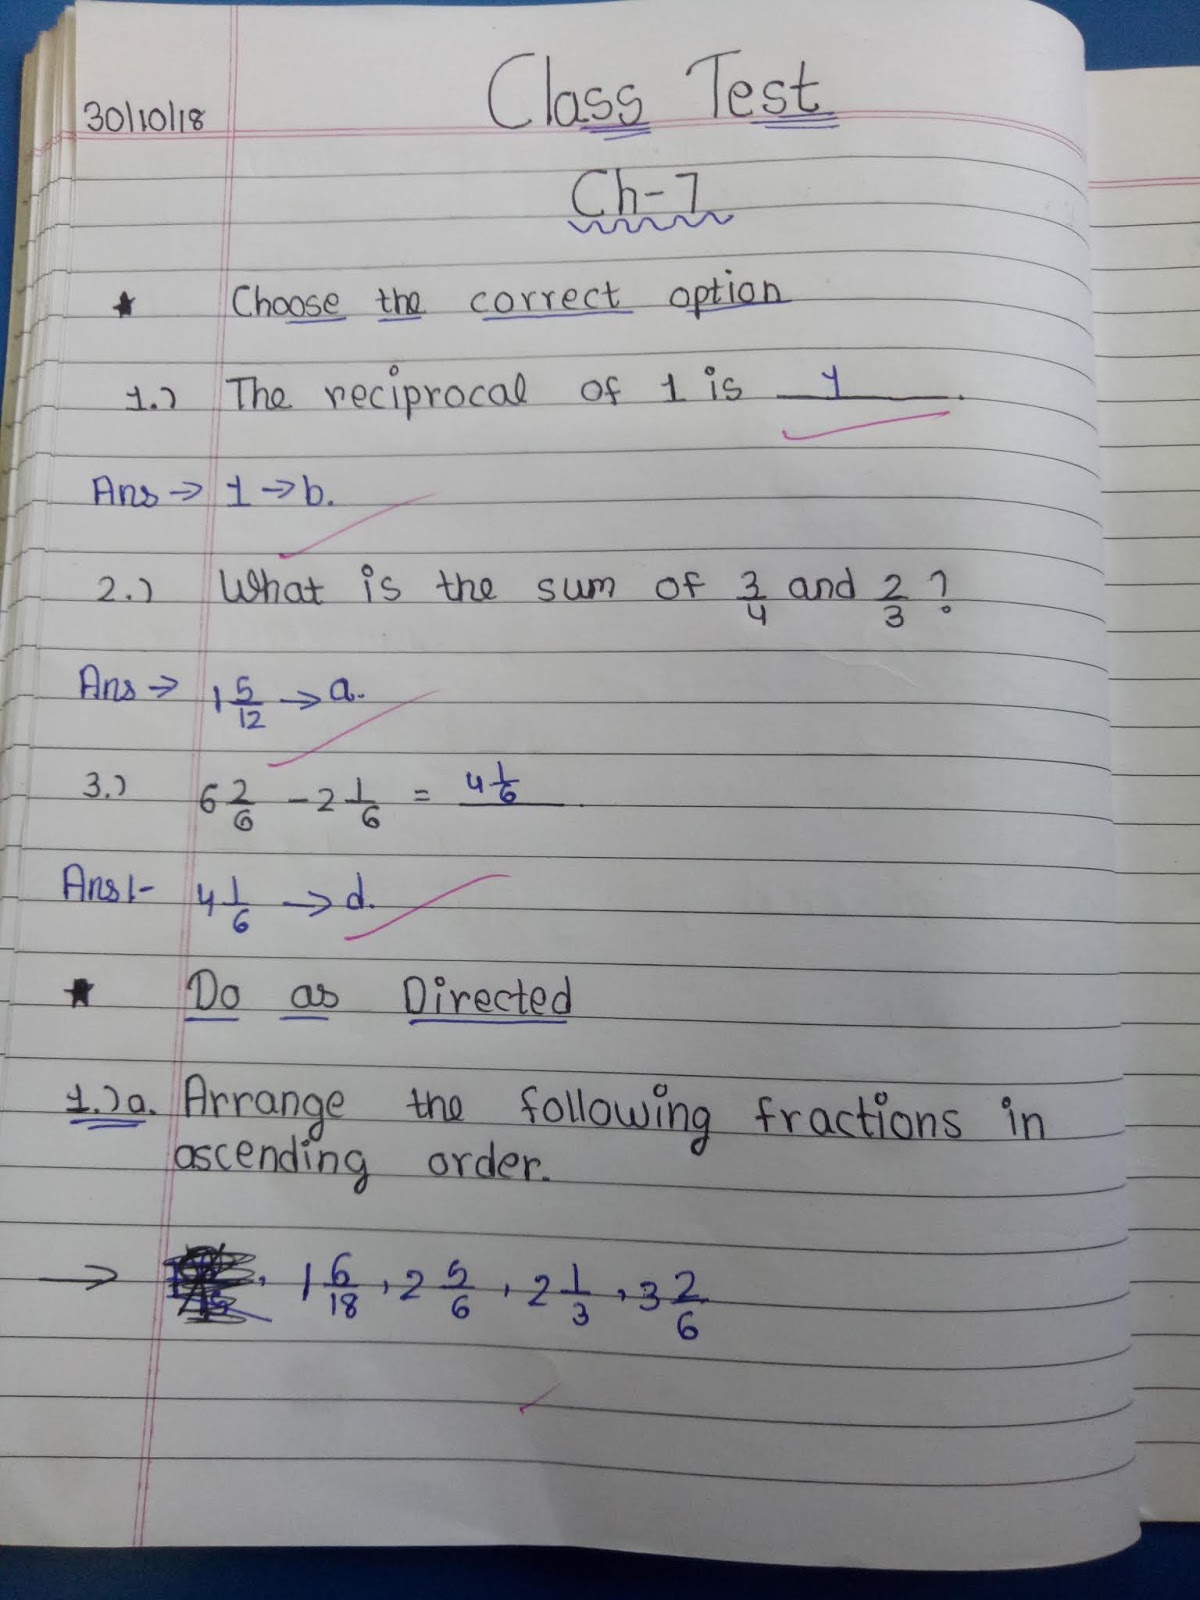 30/10/18
Class Test
Ch-7
★ Choose the correct option
1.) The reciprocal of 1 is 1.
Ans → 1 → b.
2.) What is the sum of 3/4 and 2/3?
Ans → 1 5/12 → a.
3.) 6 2/6 - 2 1/6 = 4 1/6.
Ans:- 4 1/6 → d.
★ Do as Directed
1.) a. Arrange the following fractions in
ascending order.
→ , 1 6/18, 2 5/6, 2 1/3, 3 2/6